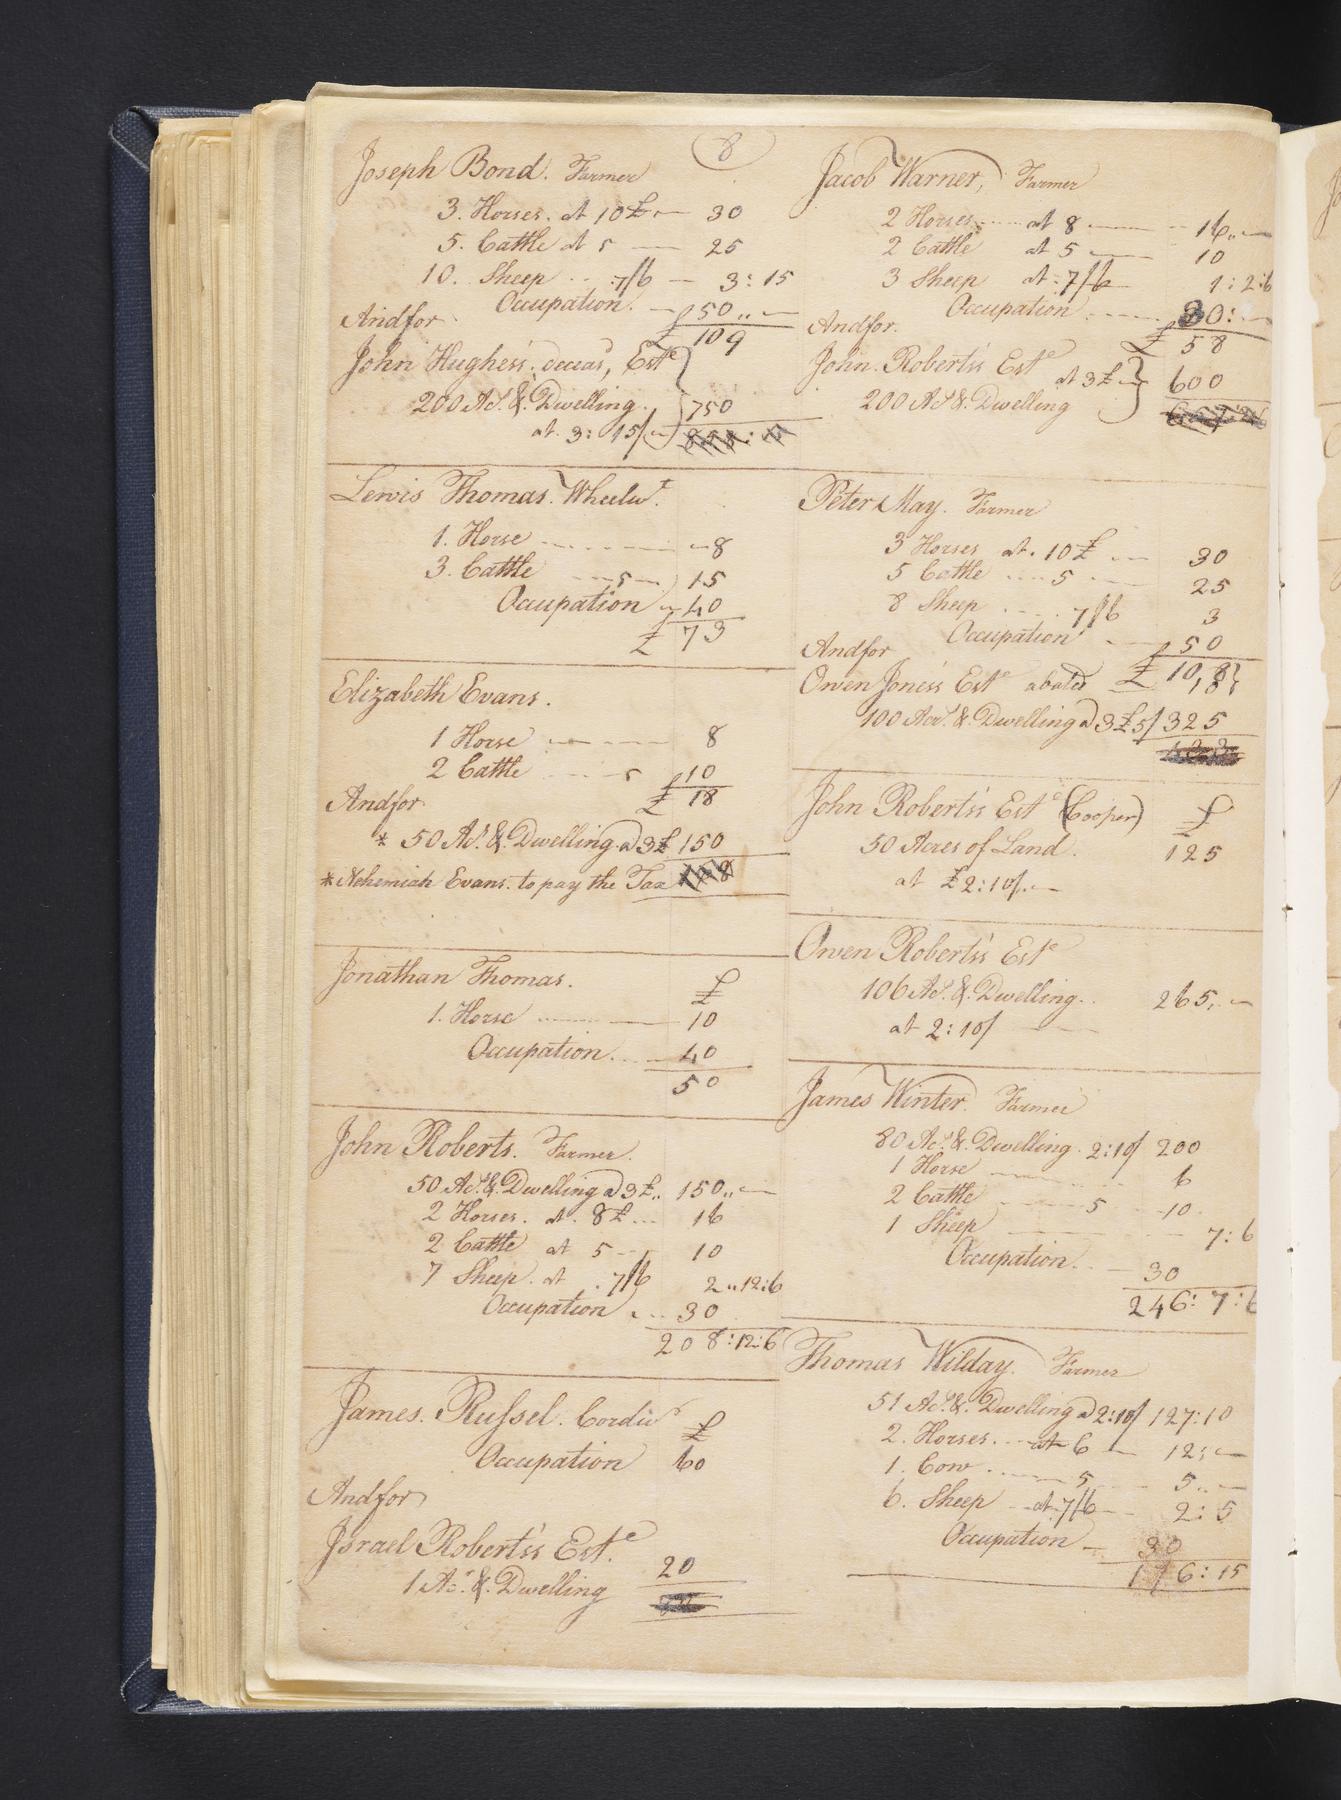 8
Joseph Bond. Farmer
3. Horses. at 10£ 30
5. Cattle at 5 25
10. Sheep 7/6 3:15
Occupation. 50
Andfor £ 109
John Hughes's. deceas'd, Este
200 Acs. & Dwelling. 750
at 3:15/
Lewis Thomas. Wheelwt.
1. Horse 8
3. Cattle 5 15
Occupation 40
£ 73
Elizabeth Evans.
1 Horse 8
2 Cattle 5 10
Andfor £ 18
* 50 Acs. & Dwelling a 3£ 150
* Nehemiah Evans. to pay the Tax
Jonathan Thomas. £
1. Horse 10
Occupation 40
50
John Roberts. Farmer.
50 Acs. & Dwelling a 3£ 150
2 Horses. at. 8£ 16
2 Cattle at 5 10
7 Sheep. at 7/6 2,,12:6
Occupation 30
208:12:6
James. Russel. Cordwr £
Occupation 60
Andfor
Israel Roberts's Este.
1 Acr. & Dwelling 20
Jacob Warner, Farmer
2 Horses at 8 16
2 Cattle at 5 10
3 Sheep at 7/6 1:2:6
Occupation 30
Andfor. £ 58
John. Roberts's Este at 3£ 600
200 Acs. & Dwelling
Peter May. Farmer
3 Horses at. 10£ 30
5 Cattle 5 25
8 Sheep 7/6 3
Occupation 50
Andfor £ 108
Owen Jones's Este abated 18
100 Acr. & Dwelling a 3£5/ 325
John Roberts's Este (Cooper) £
50 Acres of Land. 125
at £2:10/
Owen Roberts's Este
106 Acs. & Dwelling 265
at 2:10/
James Winter. Farmer
80 Acs. & Dwelling. 2:10/ 200
1 Horse 6
2 Cattle 5 10
1 Sheep 7:6
Occupation. 30
246:7:6
Thomas Wilday. Farmer
51 Acs. & Dwelling a 2:10/ 127:10
2. Horses. at 6 12
1. Cow 5 5
6. Sheep at 7/6 2:5
Occupation 30
176:15